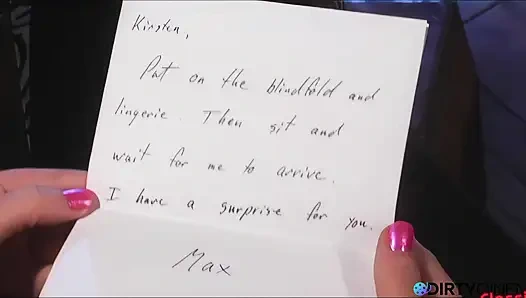 Kirsten,
Put on the blindfold and
lingerie. Then sit and
wait for me to arrive.
I have a surprise for you.
Max
DIRTYCINEMA